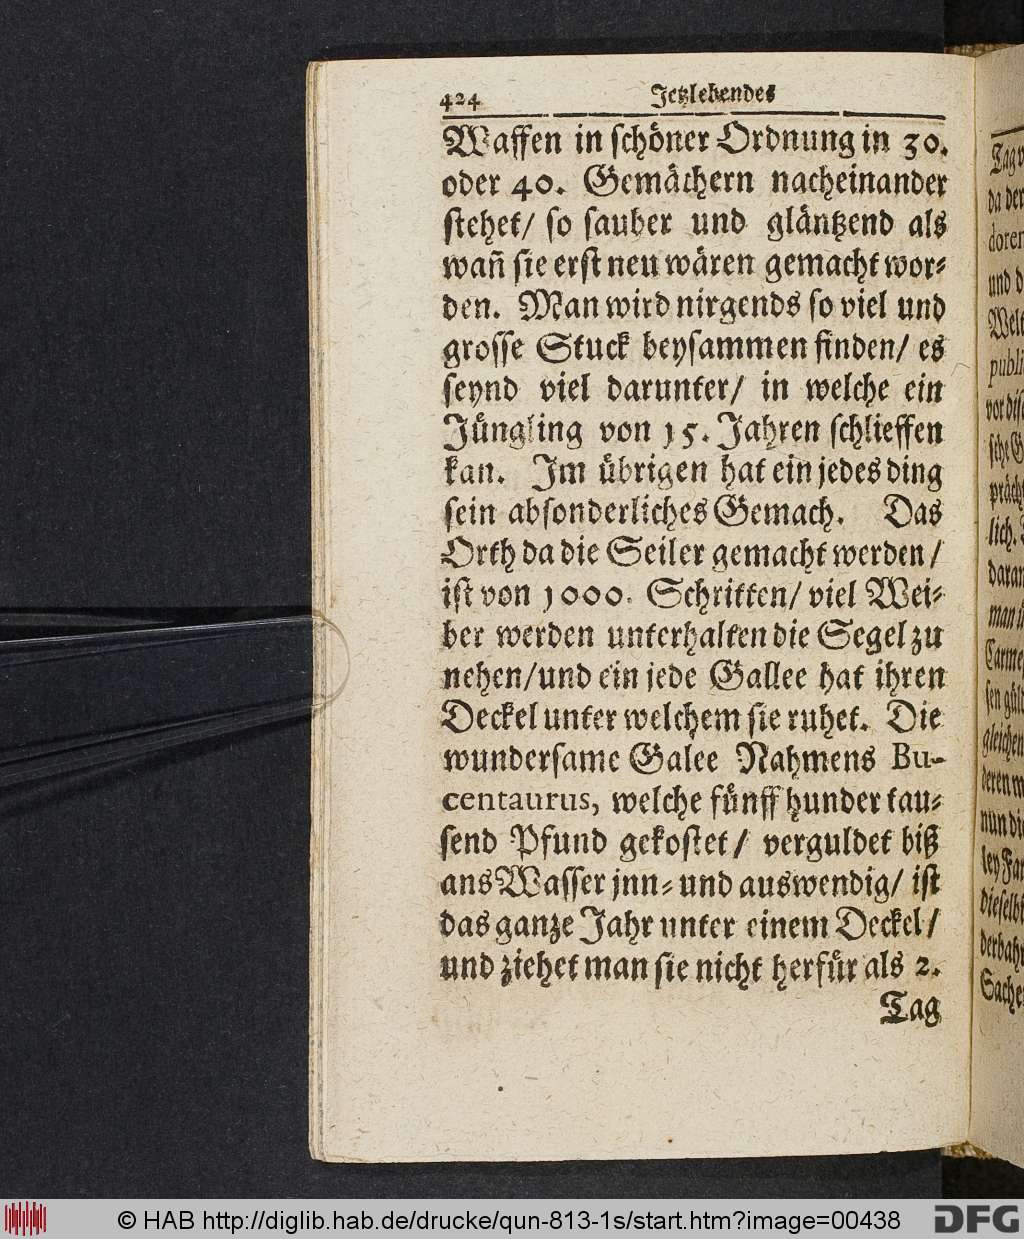 424 Jetzlebendes
Waffen in schöner Ordnung in 30.
oder 40. Gemächern nacheinander
stehet/ so sauber und gläntzend als
wañ sie erst neu wären gemacht wor-
den. Man wird nirgends so viel und
grosse Stuck beysammen finden/ es
seynd viel darunter/ in welche ein
Jüngling von 15. Jahren schlieffen
kan. Im übrigen hat ein jedes ding
sein absonderliches Gemach. Das
Orth da die Seiler gemacht werden/
ist von 1000. Schritten/ viel Wei-
ber werden unterhalten die Segel zu
nehen/ und ein jede Gallee hat ihren
Deckel unter welchem sie ruhet. Die
wundersame Galee Nahmens Bu-
centaurus, welche fünff hundert tau-
send Pfund gekostet/ verguldet biß
ans Wasser jnn- und auswendig/ ist
das ganze Jahr unter einem Deckel/
und ziehet man sie nicht herfür als 2.
Tag
da der
und d
Welt
publi
sche G
lich.
daran
man
gleichen
nun di
ley
Sache
© HAB http://diglib.hab.de/drucke/qun-813-1s/start.htm?image=00438
DFG